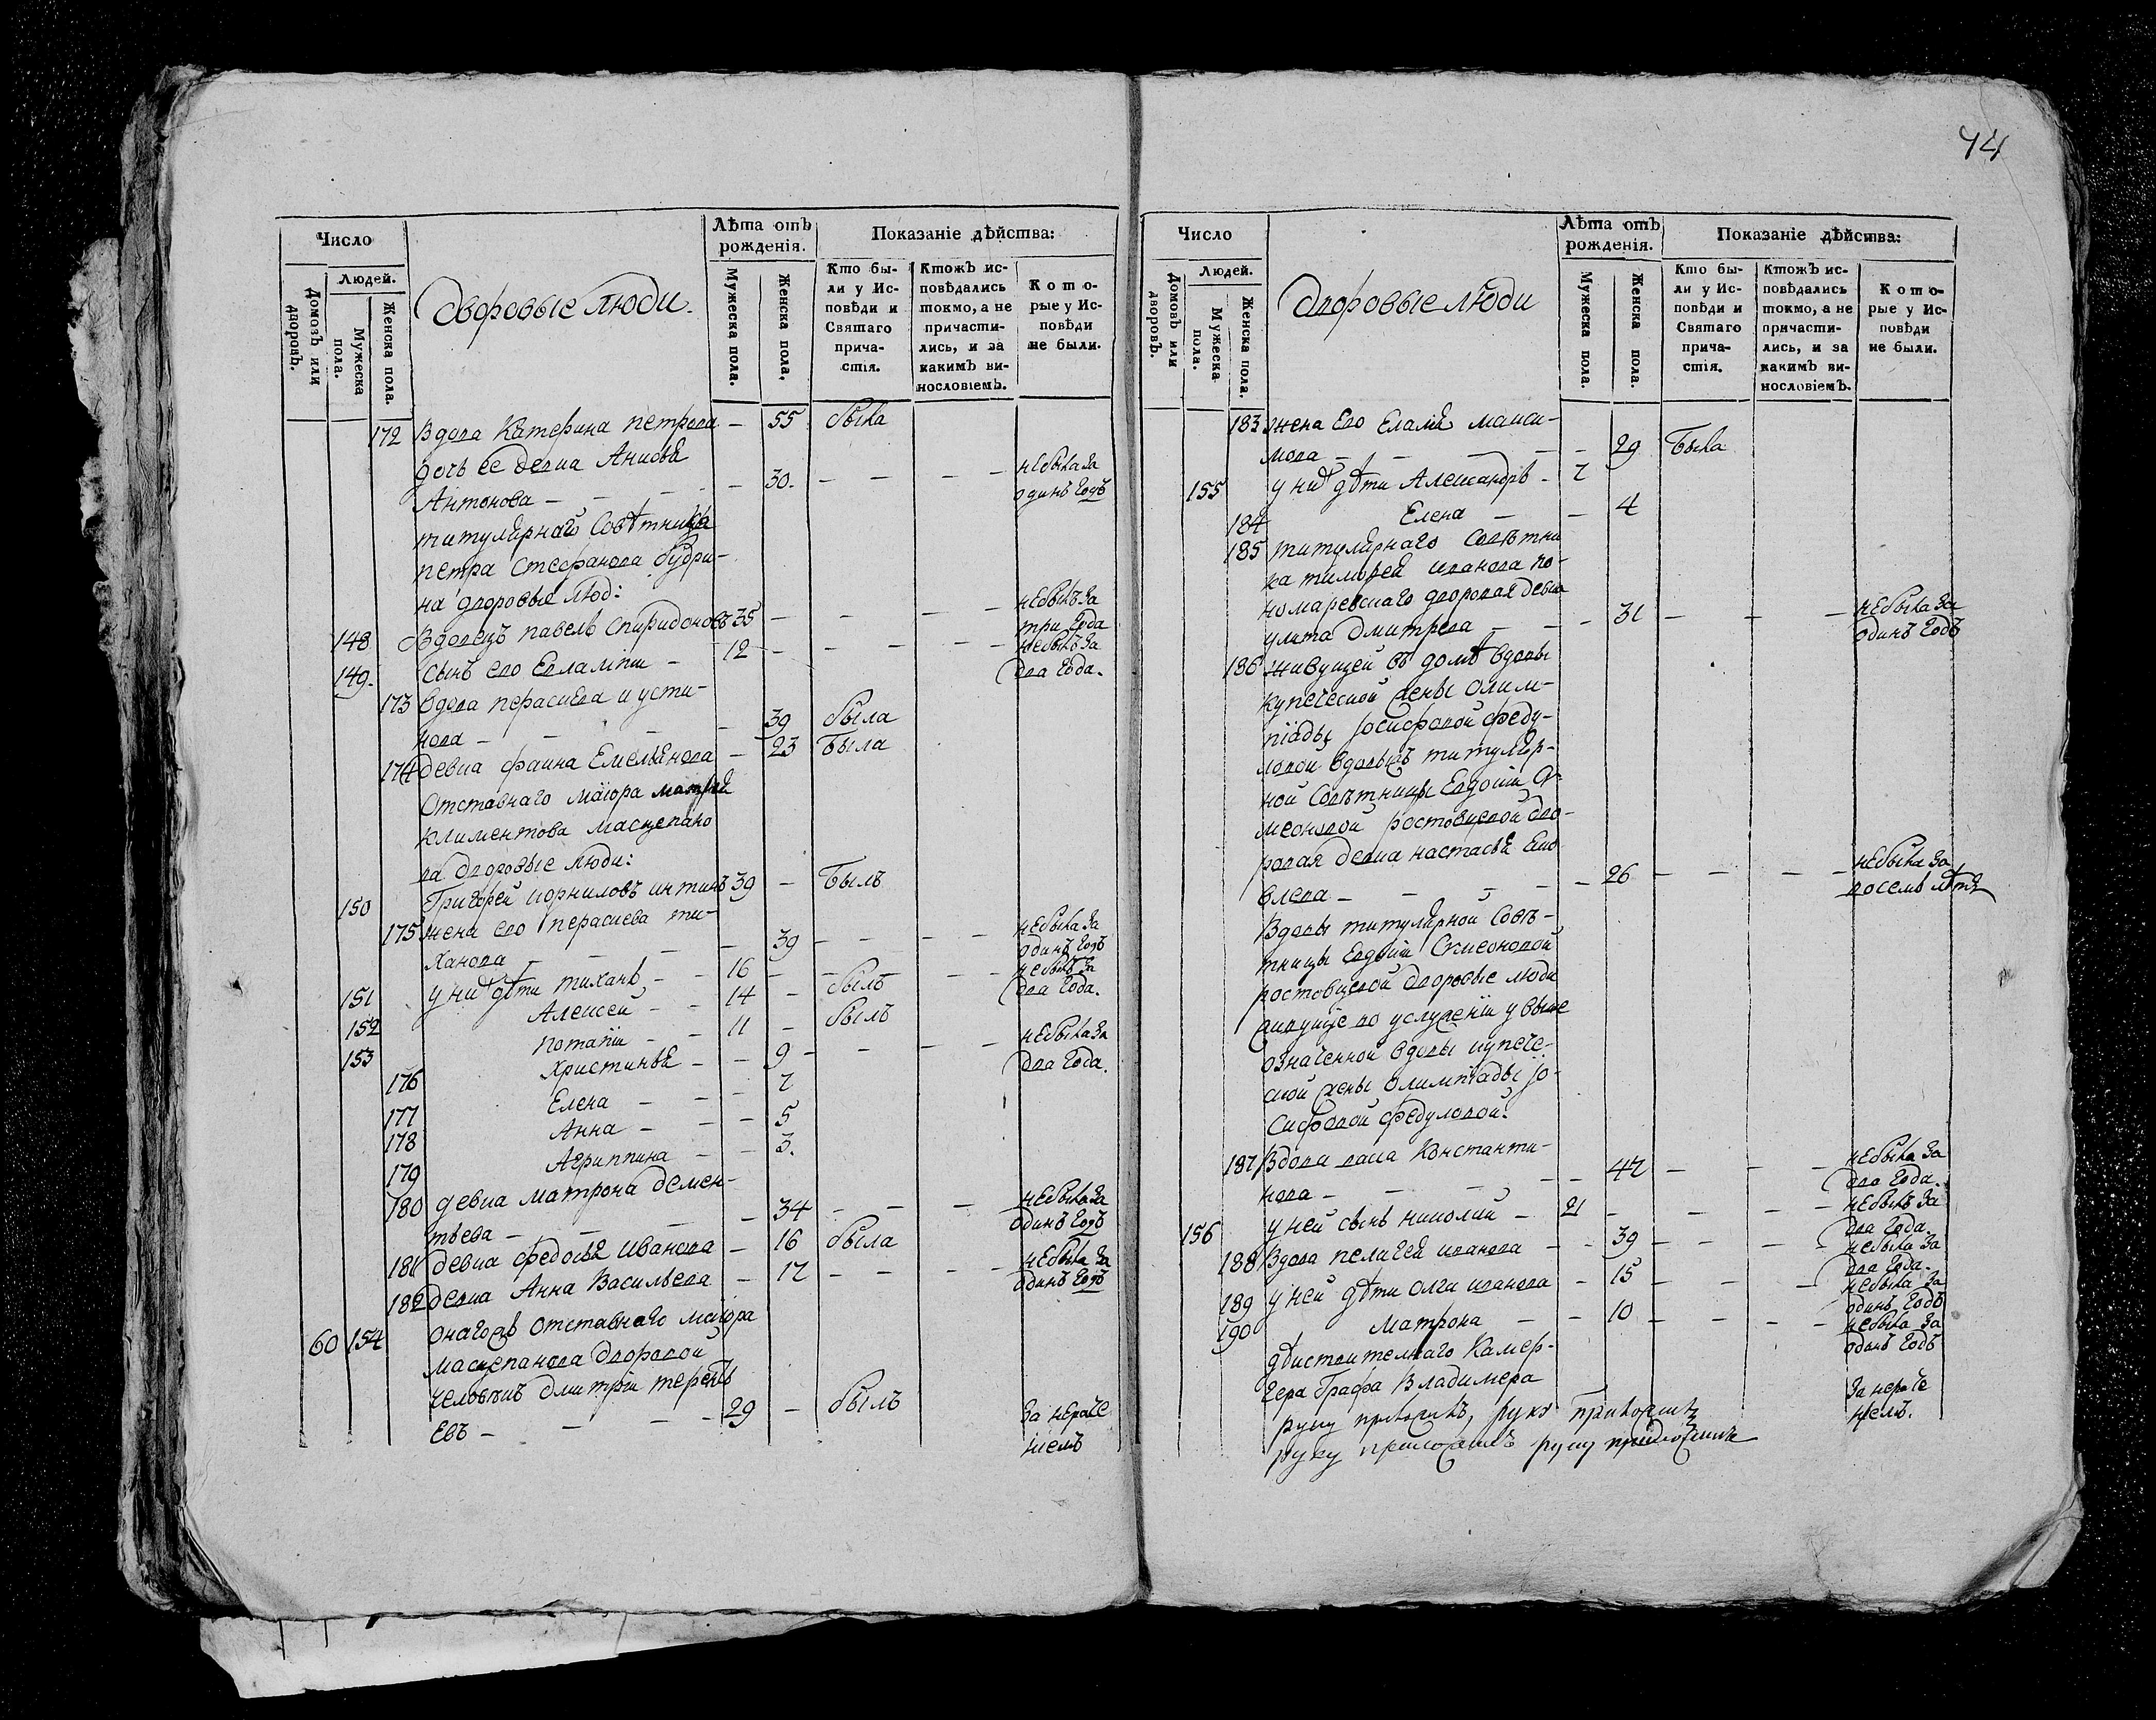 44
Число
Людей.
Домовъ или дворовъ.
Мужеска пола.
Женска пола.
Дворовые люди.
Лѣта отъ рожденія.
Мужеска пола.
Женска пола.
Показаніе дѣйства:
Кто были у Исповѣди и Святаго причастія.
Ктожъ исповѣдались токмо, а не причастились, и за какимъ винословіемъ.
Которые у Исповѣди не были.
172 Вдова Катерина петрова — 55 была
дочь ее девка Анисья небыла за
Антонова — — 30. — — — одинъ годъ
титулярнаго Совѣтника
петра Стефанова
на дворовые люд:
148 Вдовецъ павелъ Спиридоновъ 35 — — — — небылъ за три года
149. сынъ его Евлампiи — 12 — — — — небылъ за два года.
173 вдова параскева и усти-
нова — — — — 39 была
174 девка фаина Емельянова — 23 Была
Отставнаго маiора
климентова
ва дворовые люди:
150 Григорей корниловъ 39 — Былъ
175 жена его параскева ти-
ханова — — — 39 — — — небыла за одинъ годъ
151 у них дѣти тиханъ — 16 — — — — небылъ за два года.
152 Алексей — — 14 — былъ
153 потапiи — — 11 — былъ
176 Христинья — — 9 — — — — небыла за два года.
177 Елена — — — 7
178 Анна — — — 5
179 Агриппина — — 3.
180 девка матрона демен-
тьева — — — 34 — — — небыла за одинъ годъ
181 девка федосья Иванова — 16 была
182 девка Анна Васильева — 17 — — — небыла за одинъ годъ
60 154 онагожъ отставнаго маiора
дворовой
человѣкъ дмитрiи терентi
евъ — — — 29 — былъ
за нераче
нiемъ
Число
Людей.
Домовъ или дворовъ.
Мужеска пола.
Женска пола.
дворовые люди
Лѣта отъ рожденія.
Мужеска пола.
Женска пола.
Показаніе дѣйства:
Кто были у Исповѣди и Святаго причастія.
Ктожъ исповѣдались токмо, а не причастились, и за какимъ винословіемъ.
Которые у Исповѣди не были.
183 жена его макси-
мова — — — — 29 Была
155 у них дѣти Александръ — 7
184 Елена — — 4
185 титулярнаго совѣтни
ка тимофея иванова по-
номаревскаго дворовая девка
улита дмитрева — — — 31 — — — небыла за одинъ годъ
186 живущей въ домѣ вдовы
купеческой жены олим-
пiады Iосифовой феду-
ловой вдовыжъ титуляр-
ной Совѣтницы Евдокiи Си-
меоновой ростовцевой дво-
ровая девка настасья
влева — — — — 26 — — — небыла за восемь лѣтъ
Вдовы титулярной Совѣ-
тницы Евдокiи Симеоновой
ростовцевой дворовые люди
живущiе во услуженiи у выше
означенной вдовы купече-
ской жены олимпiады Iо-
сифовой федуловой:
187 Вдова васа Константи-
нова — — — — 47 — — — небыла за два года.
156 у ней сынъ николаи — 21 — — — — небылъ за два года.
188 Вдова пелагея иванова — — 39 — — — небыла за два года.
189 у ней дѣти олга иванова — 15 — — — небыла за одинъ годъ
190 матрона — — 10 — — — — небыла за одинъ годъ
дѣиствителнаго Камер-
гера Графа Владимера
за нераче
нiемъ.
руку приложилъ, руку приложилъ
руку приложилъ руку приложилъ